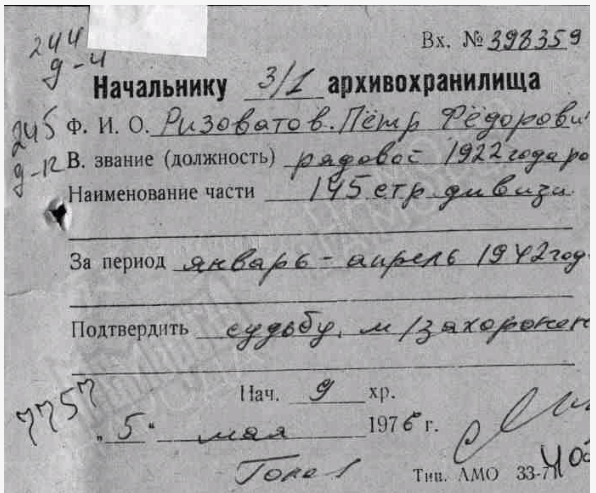 244 Вх. № 398359
д-4
Начальнику 3/1 архивохранилища
245 Ф. И. О. Ризоватов Пётр Фёдорови
д-12 В. звание (должность) рядовой 1922 года ро
Наименование части 145 стр. дивизи
За период январь - апрель 1942 год
Подтвердить судьбу, м/захоронен
Нач. 9 хр.
7757
„5“ мая 1976 г.
Тип. АМО 33-71